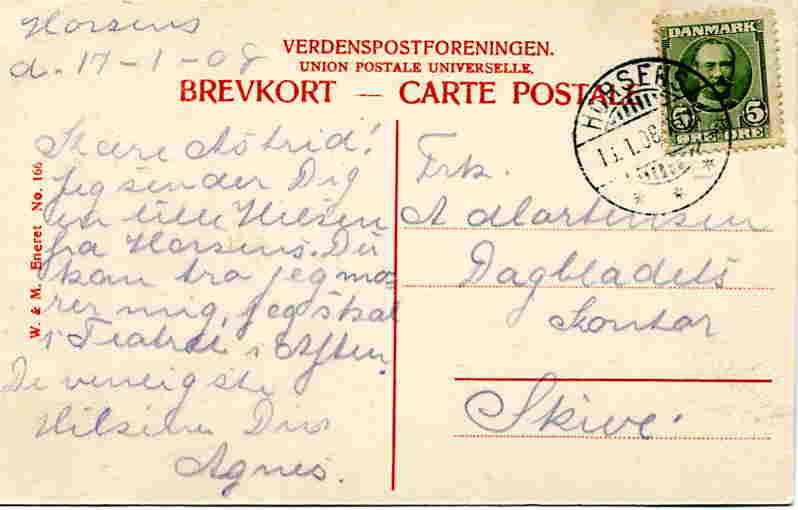 Horsens
d. 17-1-08
VERDENSPOSTFORENINGEN.
UNION POSTALE UNIVERSELLE.
BREVKORT — CARTE POSTALE
DANMARK
5 5
ØRE ØRE
HORSENS
1.08
Kære Astrid!
Jeg sender Dig
en lille Hilsen
fra Horsens. Du
kan tro jeg mo-
rer mig, jeg skal
i Teatret i Aften.
De venligste
Hilsener Din
Agnes.
W. & M. Eneret No. 166
Frk.
A Mortensen
Dagbladets
Kontor
Skive.